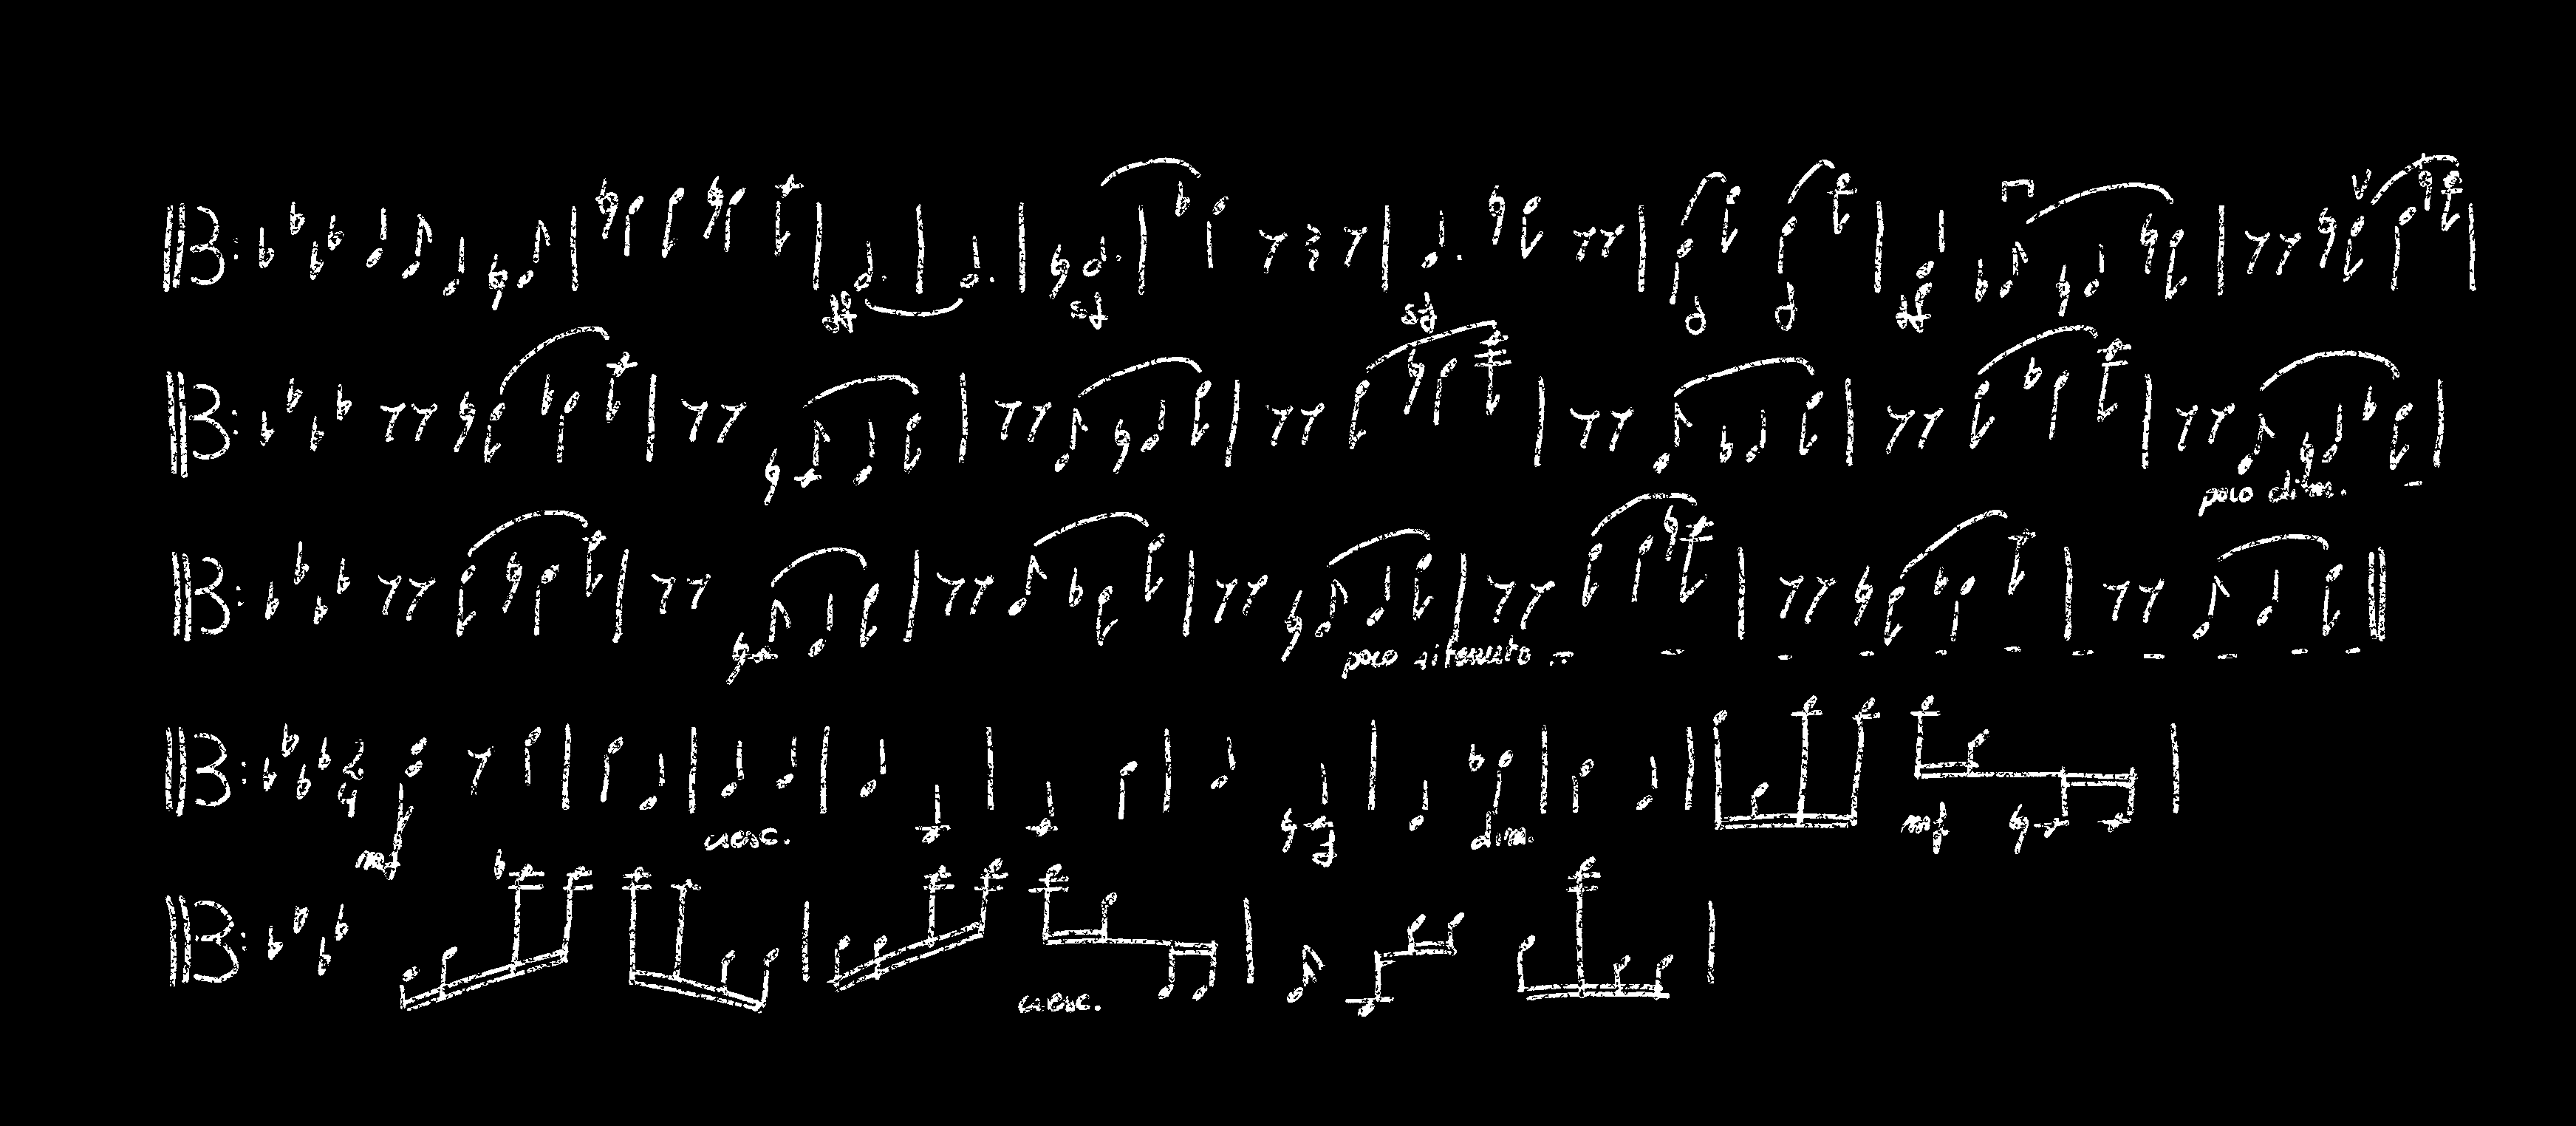 ff sf sf f f ff
poco dim. -
poco ritenuto - - - - - - - - - - -
2 4 mf cresc. f dim. mf
cresc.